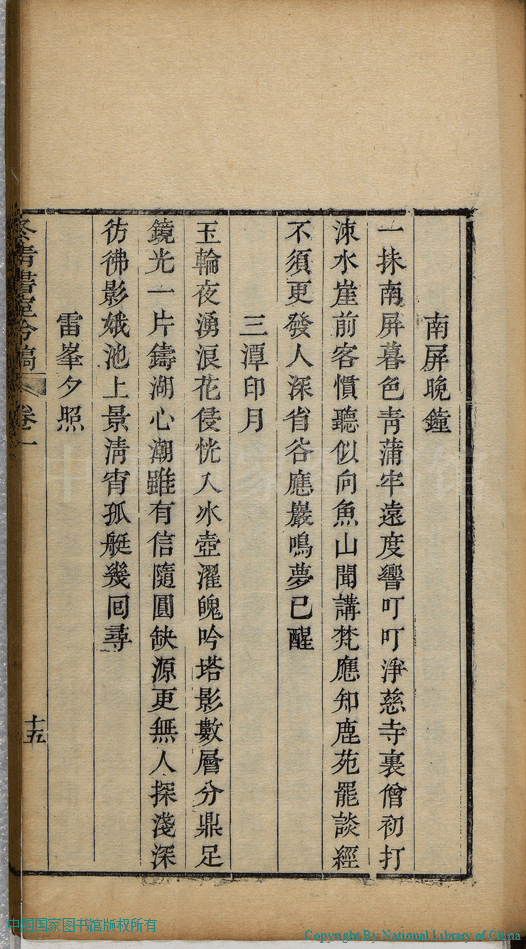 南屏晚鐘
一抹南屏暮色青蒲牢遠度響叮叮淨慈寺裏僧初打
涑水崖前客慣聽似向魚山聞講梵應知鹿苑罷談經
不須更發人深省谷應巖鳴夢已醒
三潭印月
玉輪夜湧浪花侵恍入冰壺濯魄吟塔影數層分鼎足
鏡光一片鑄湖心潮雖有信隨圓缺源更無人探淺深
彷彿影娥池上景清宵孤艇幾回尋
雷峯夕照
冬青書室吟稿 卷一 十五
中国国家图书馆版权所有
Copyright By National Library of China